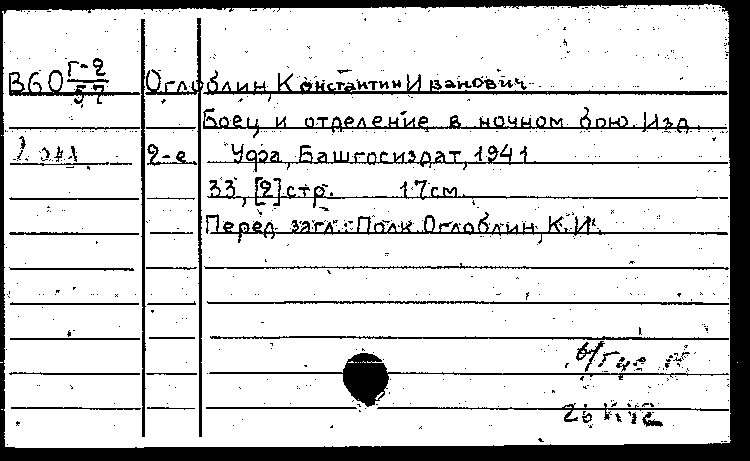 В60 Г-2/57 Оглоблин, Константин Иванович
Боец и отделение в ночном бою. Изд.
2-е. Уфа, Башгосиздат, 1941.
33, [2] стр. 17 см.
Перед загл.: Полк. Оглоблин, К. И.